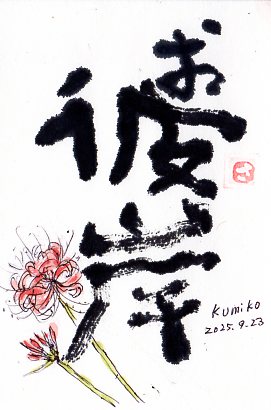 お彼岸
Kumiko
2025.9.23